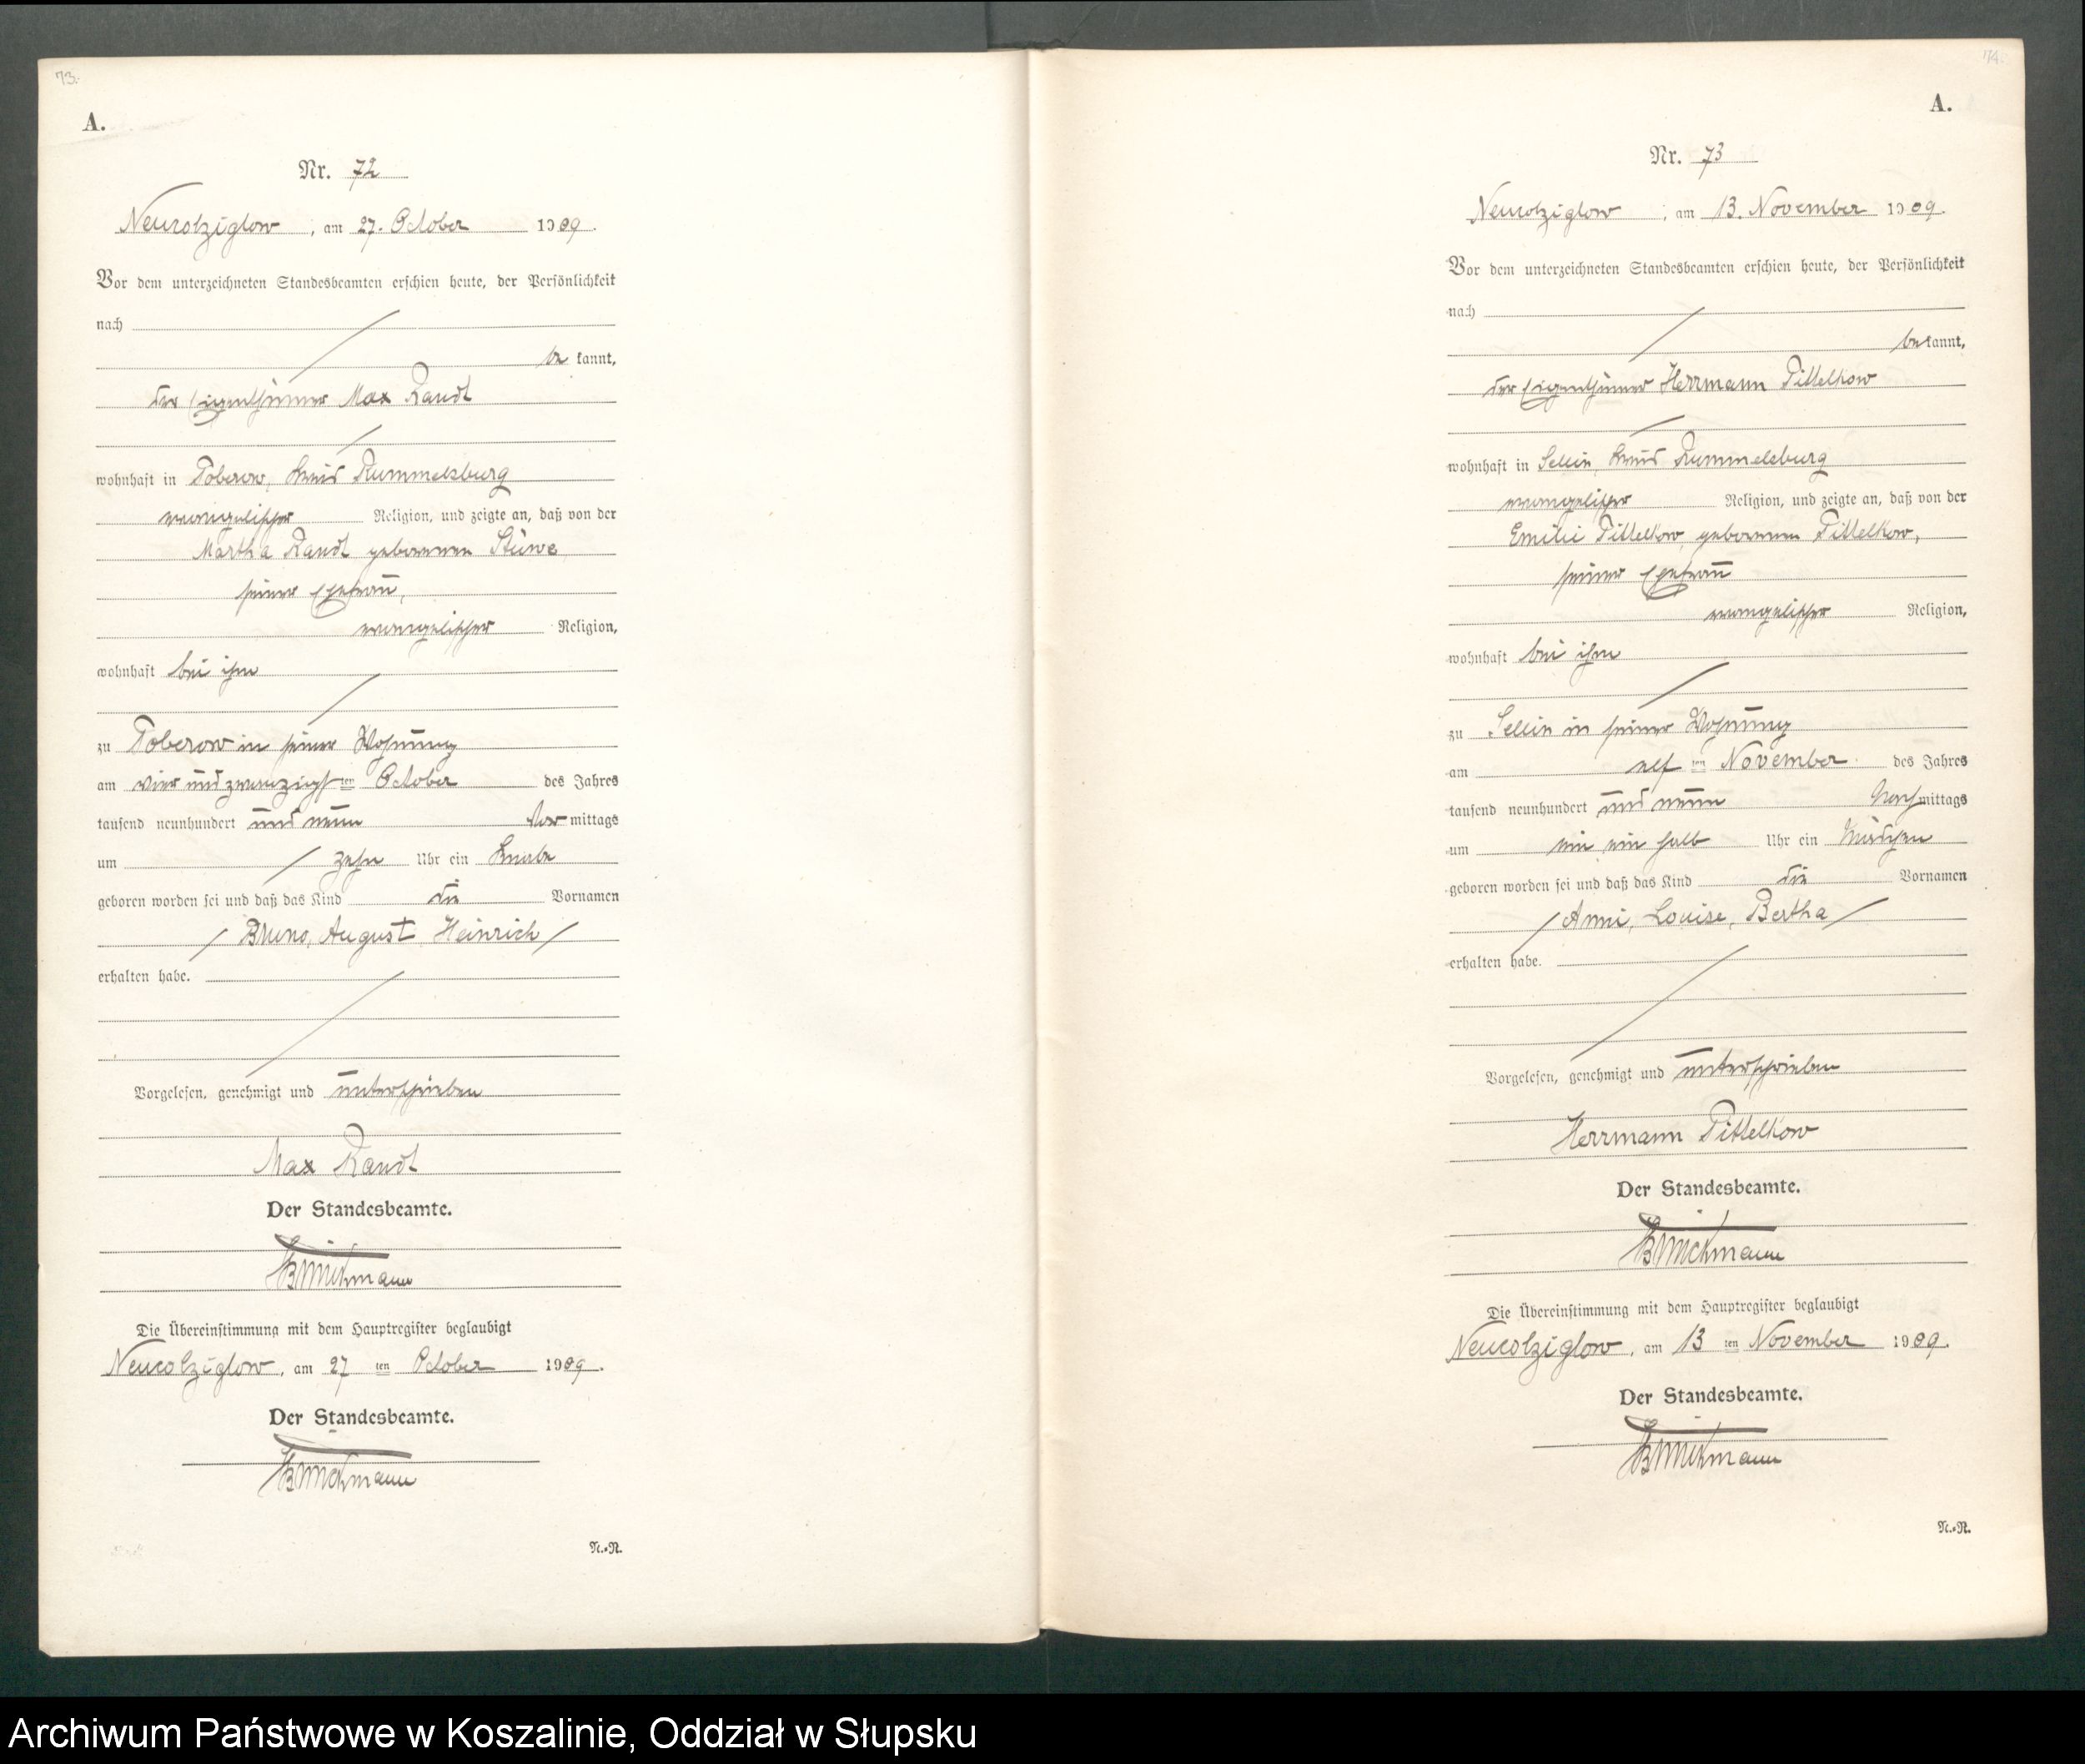 73.
A.
Nr. 72
Neukolziglow, am 27. October 1909.
Vor dem unterzeichneten Standesbeamten erschien heute, der Persönlichkeit
nach
be kannt,
der Eigenthümer Max Randt
wohnhaft in Poberow, Kreis Rummelsburg
evangelischer Religion, und zeigte an, daß von der
Martha Randt geborenen Stüwe
seiner Ehefrau,
evangelischer Religion,
wohnhaft bei ihm
zu Poberow in seiner Wohnung
am vier und zwanzigsten October des Jahres
tausend neunhundert und neun Vor mittags
um zehn Uhr ein Knabe
geboren worden sei und daß das Kind die Vornamen
Bruno, August Heinrich
erhalten habe.
Vorgelesen, genehmigt und unterschrieben
Max Randt
Der Standesbeamte.
Die Übereinstimmung mit dem Hauptregister beglaubigt
Neukolziglow, am 27 ten October 1909.
Der Standesbeamte.
N.=R.
74.
A.
Nr. 73
Neukolziglow, am 13. November 1909.
Vor dem unterzeichneten Standesbeamten erschien heute, der Persönlichkeit
nach
be kannt,
der Eigenthümer Herrmann Pittelkow
wohnhaft in Sellin, Kreis Rummelsburg
evangelischer Religion, und zeigte an, daß von der
Emilie Pittelkow, geborenen Pittelkow,
seiner Ehefrau
evangelischer Religion,
wohnhaft bei ihm
zu Sellin in seiner Wohnung
am elf ten November des Jahres
tausend neunhundert und neun Nach mittags
um ein ein halb Uhr ein Mädchen
geboren worden sei und daß das Kind die Vornamen
Anni, Louise, Bertha
erhalten habe.
Vorgelesen, genehmigt und unterschrieben
Herrmann Pittelkow
Der Standesbeamte.
Die Übereinstimmung mit dem Hauptregister beglaubigt
Neukolziglow, am 13 ten November 1909.
Der Standesbeamte.
N.=R.
Archiwum Państwowe w Koszalinie, Oddział w Słupsku